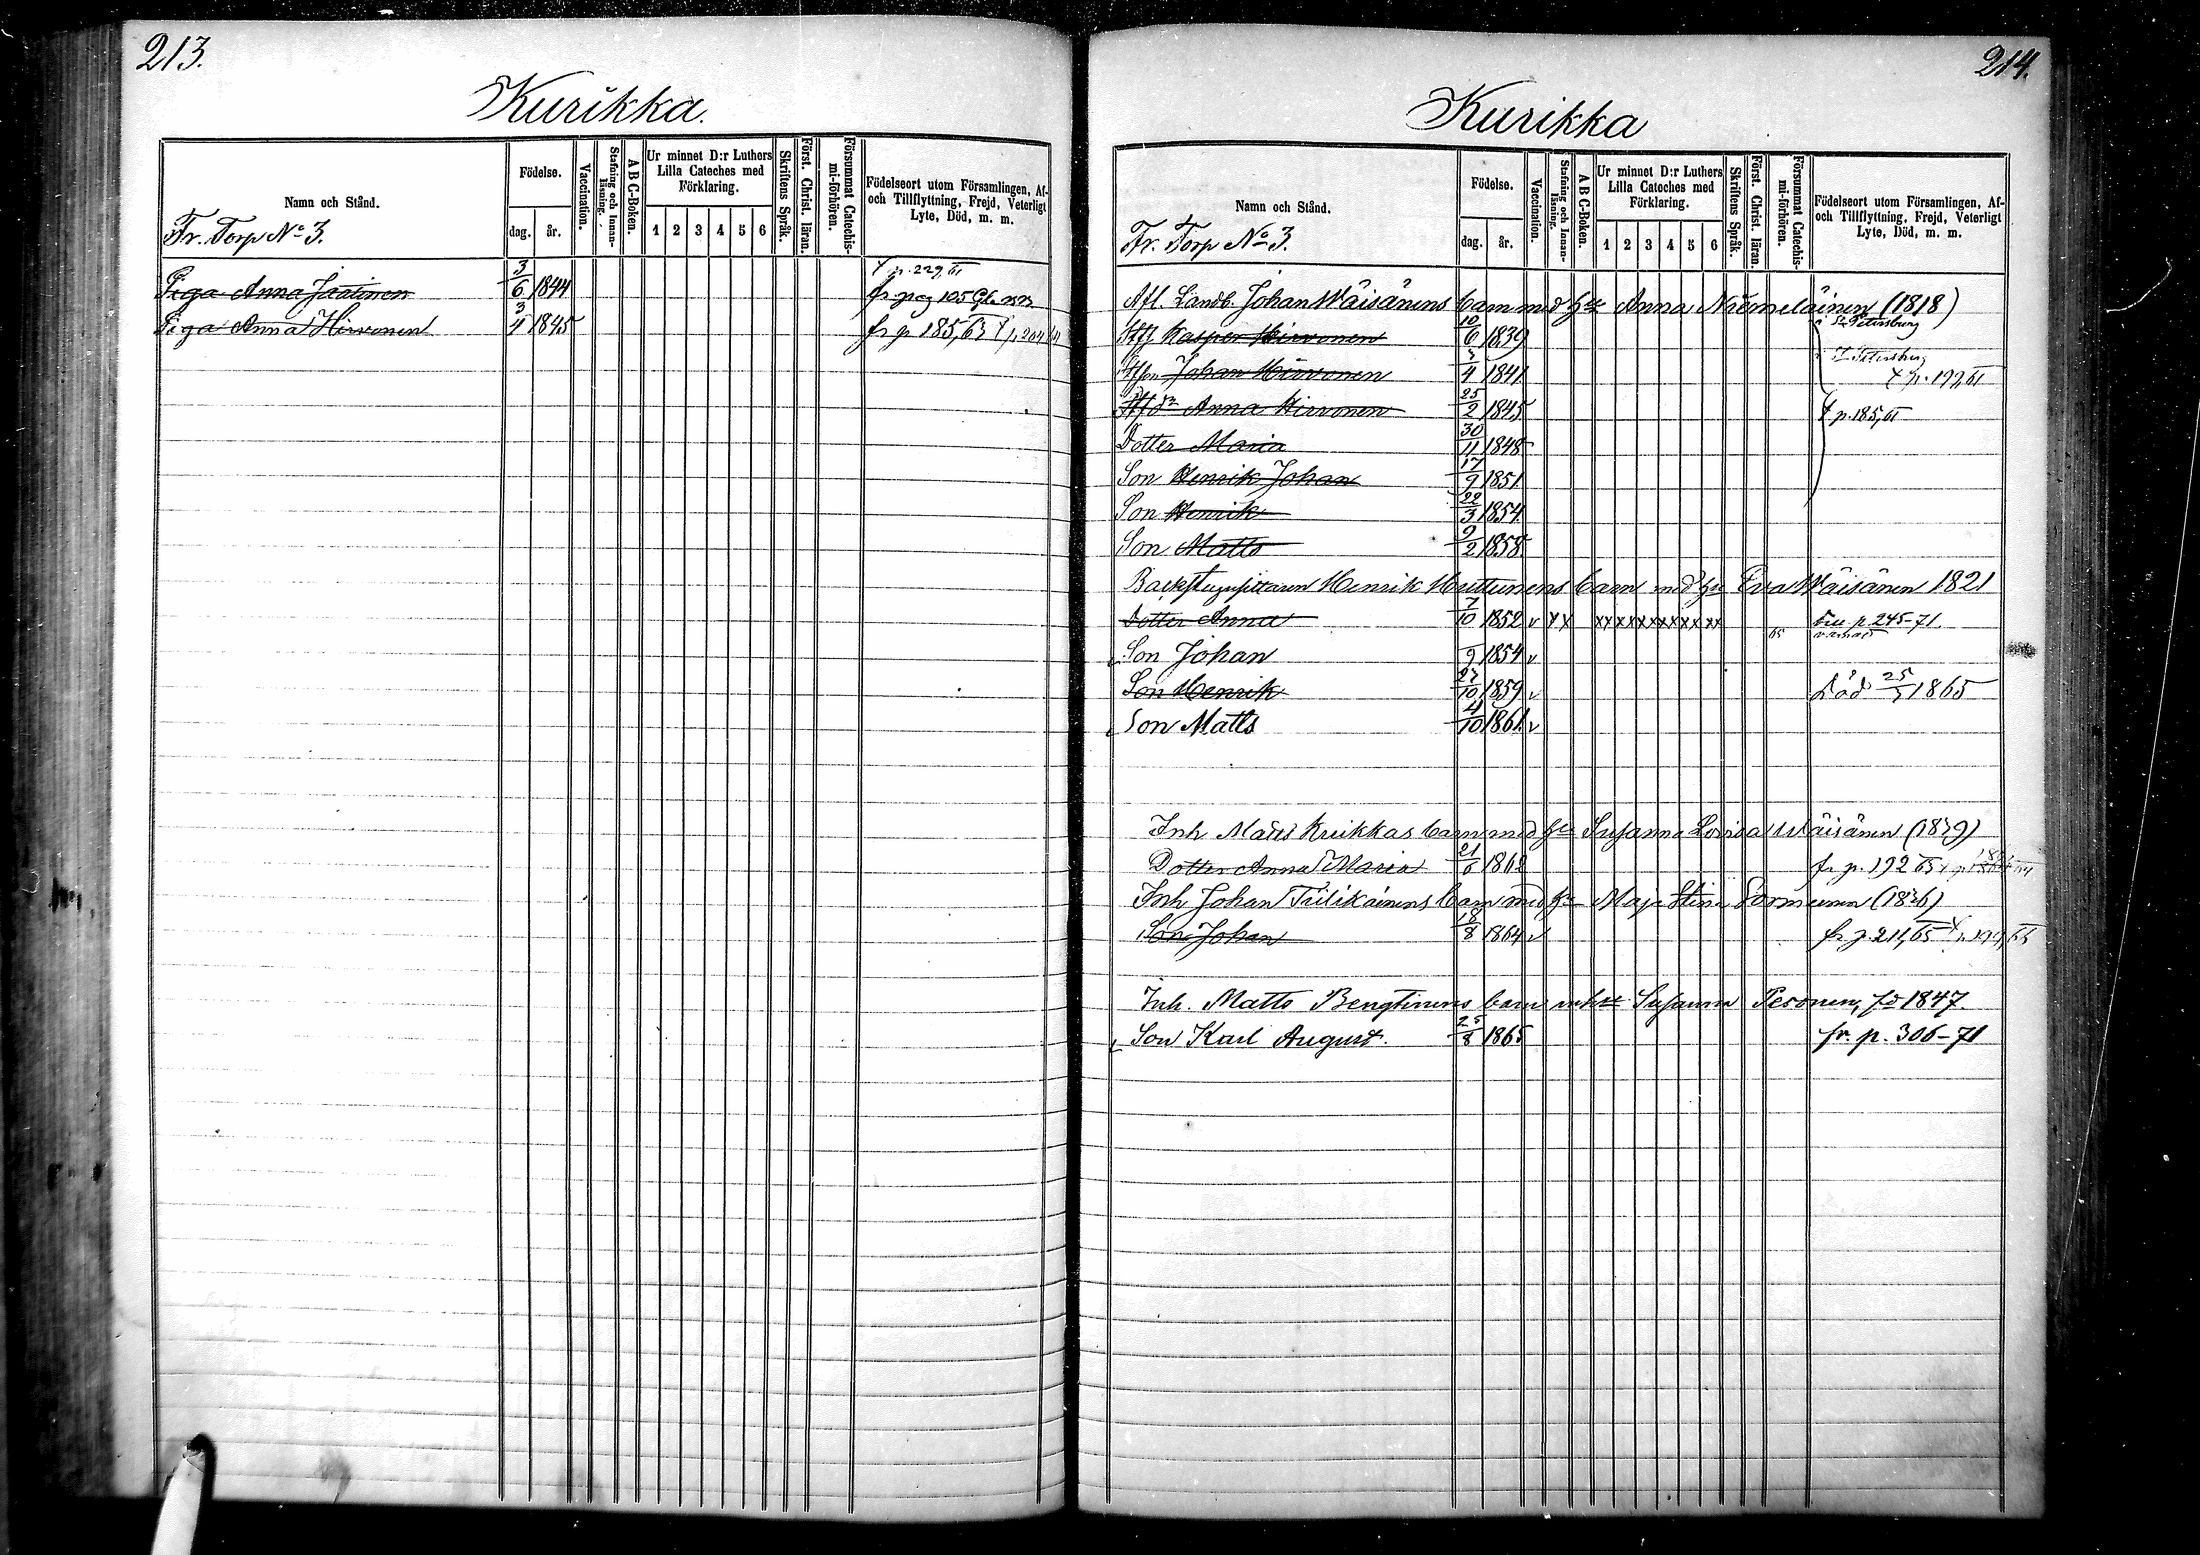 213.
Kurikka.
Namn och Stånd.
Födelse.
dag. år.
Vaccination.
Stafning och Innan-läsning.
A B C-Boken.
Ur minnet D:r Luthers Lilla Cateches med Förklaring.
1 2 3 4 5 6
Skriftens Språk.
Först. Christ. läran.
Försummat Catechis-mi-förhören.
Födelseort utom Församlingen, Af-
och Tillflyttning, Frejd, Veterligt
Lyte, Död, m. m.
Fr. Torp No 3.
p. 229,61
Piga Anna Jäätinen 3/6 1844 fr pag 105 Gl.
Piga Anna Hirvonen 3/4 1845 fr p 185,63
214.
Kurikka
Namn och Stånd.
Födelse.
dag. år.
Vaccination.
Stafning och Innan-läsning.
A B C-Boken.
Ur minnet D:r Luthers Lilla Cateches med Förklaring.
1 2 3 4 5 6
Skriftens Språk.
Först. Christ. läran.
Försummat Catechis-mi-förhören.
Födelseort utom Församlingen, Af-
och Tillflyttning, Frejd, Veterligt
Lyte, Död, m. m.
Fr. Torp No 3.
Afl. Landb. Johan Wäisänens barn med hu Anna Niemeläinen (1818)
Kasper Hirvonen 10/6 1839 St Petersburg
Johan Hirvonen 4 1841 Petersburg
p. 199,61
Anna Hirvonen 25/2 1845 p. 185,61
Dotter Maria 30/11 1848
Son Henrik Johan 17/9 1851
Son Henrik 22/3 1854
Son Matts 9/2 1858
Backstugusittaren Henrik Huttunens barn med hu Eva Wäisänen 1821
Dotter Anna 7/10 1852 v x x xx xx xx xx xx xx p. 245-71.
65
Son Johan 9 1854 v
Son Henrik 27/10 1859 v Död 25/ 1865
Son Matts 4/10 1861 v
Inh Matts Kuikkas barn med hu Susanna Lovisa Wäisänen (1839)
Dotter Anna Maria 21/6 1862 fr p. 192 65
Inh Johan Tiilikainens barn med hu Maja Stina Sormunen (1836)
Son Johan 18/8 1864 v fr p. 211,65
Inh. Matts Bengtinens barn m hu Susanna Pesonen, fd 1847.
Son Karl August. 25/8 1865 fr. p. 306-71